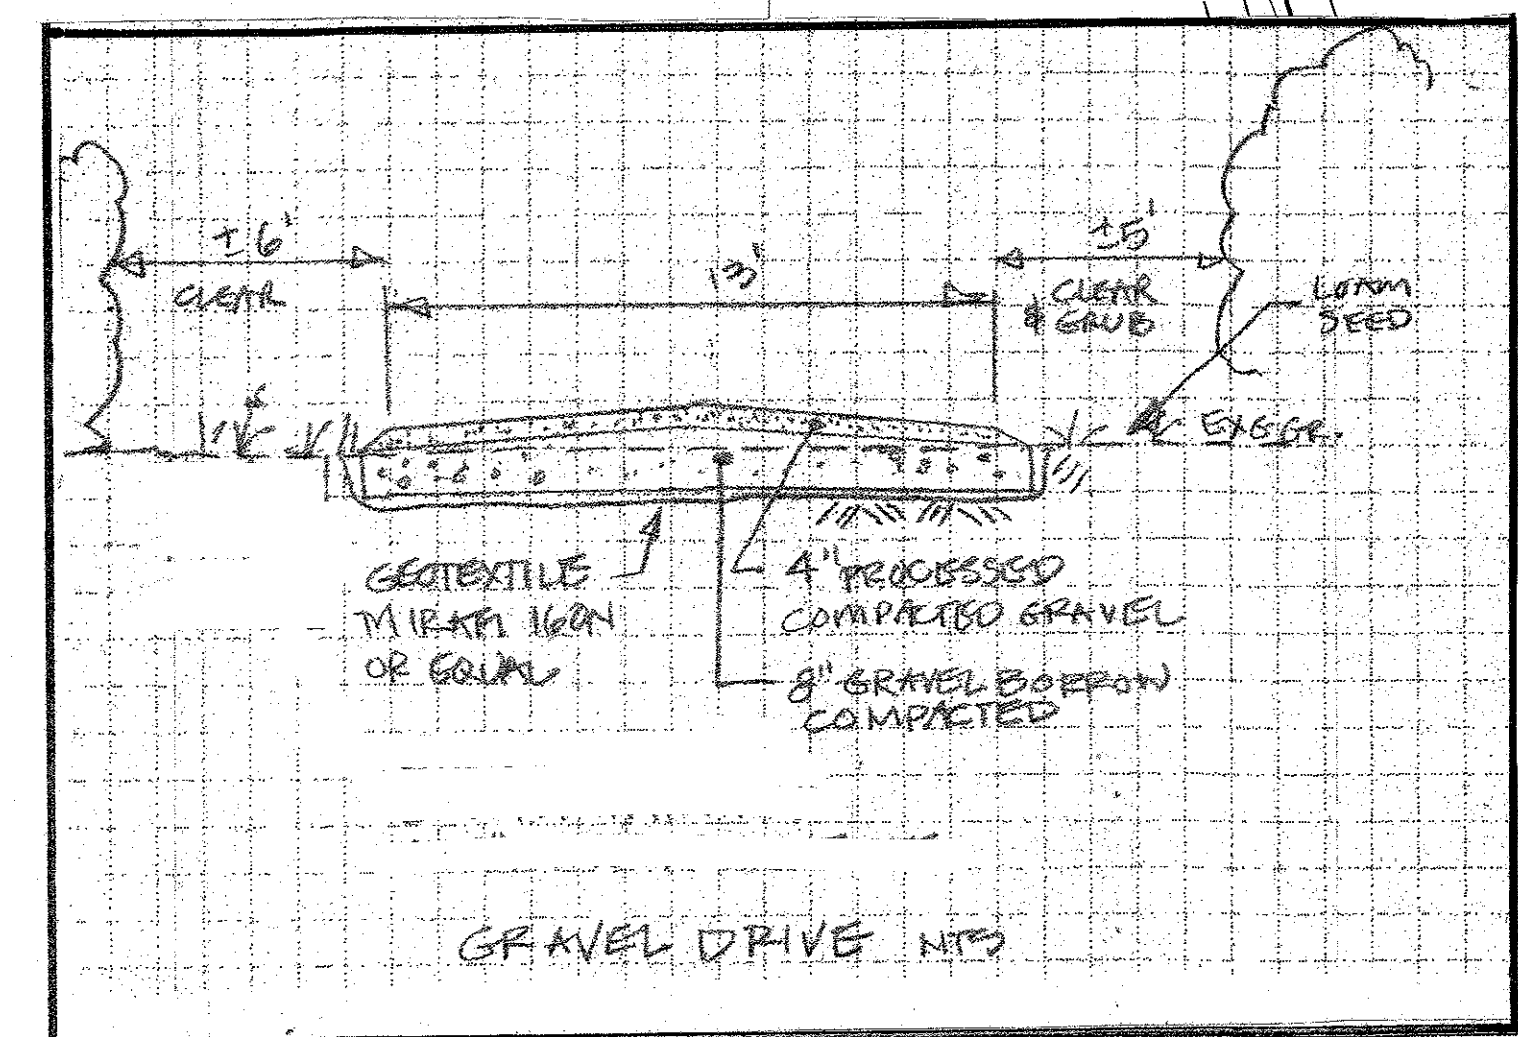 ± 6'
CLEAR
13'
±5'
CLEAR
& GRUB
LOAM
SEED
EX.G GR.
GEOTEXTILE
MIRAFI 160N
OR EQUAL
4" PROCESSED
COMPACTED GRAVEL
8" GRAVEL BORROW
COMPACTED
GRAVEL DRIVE NTS